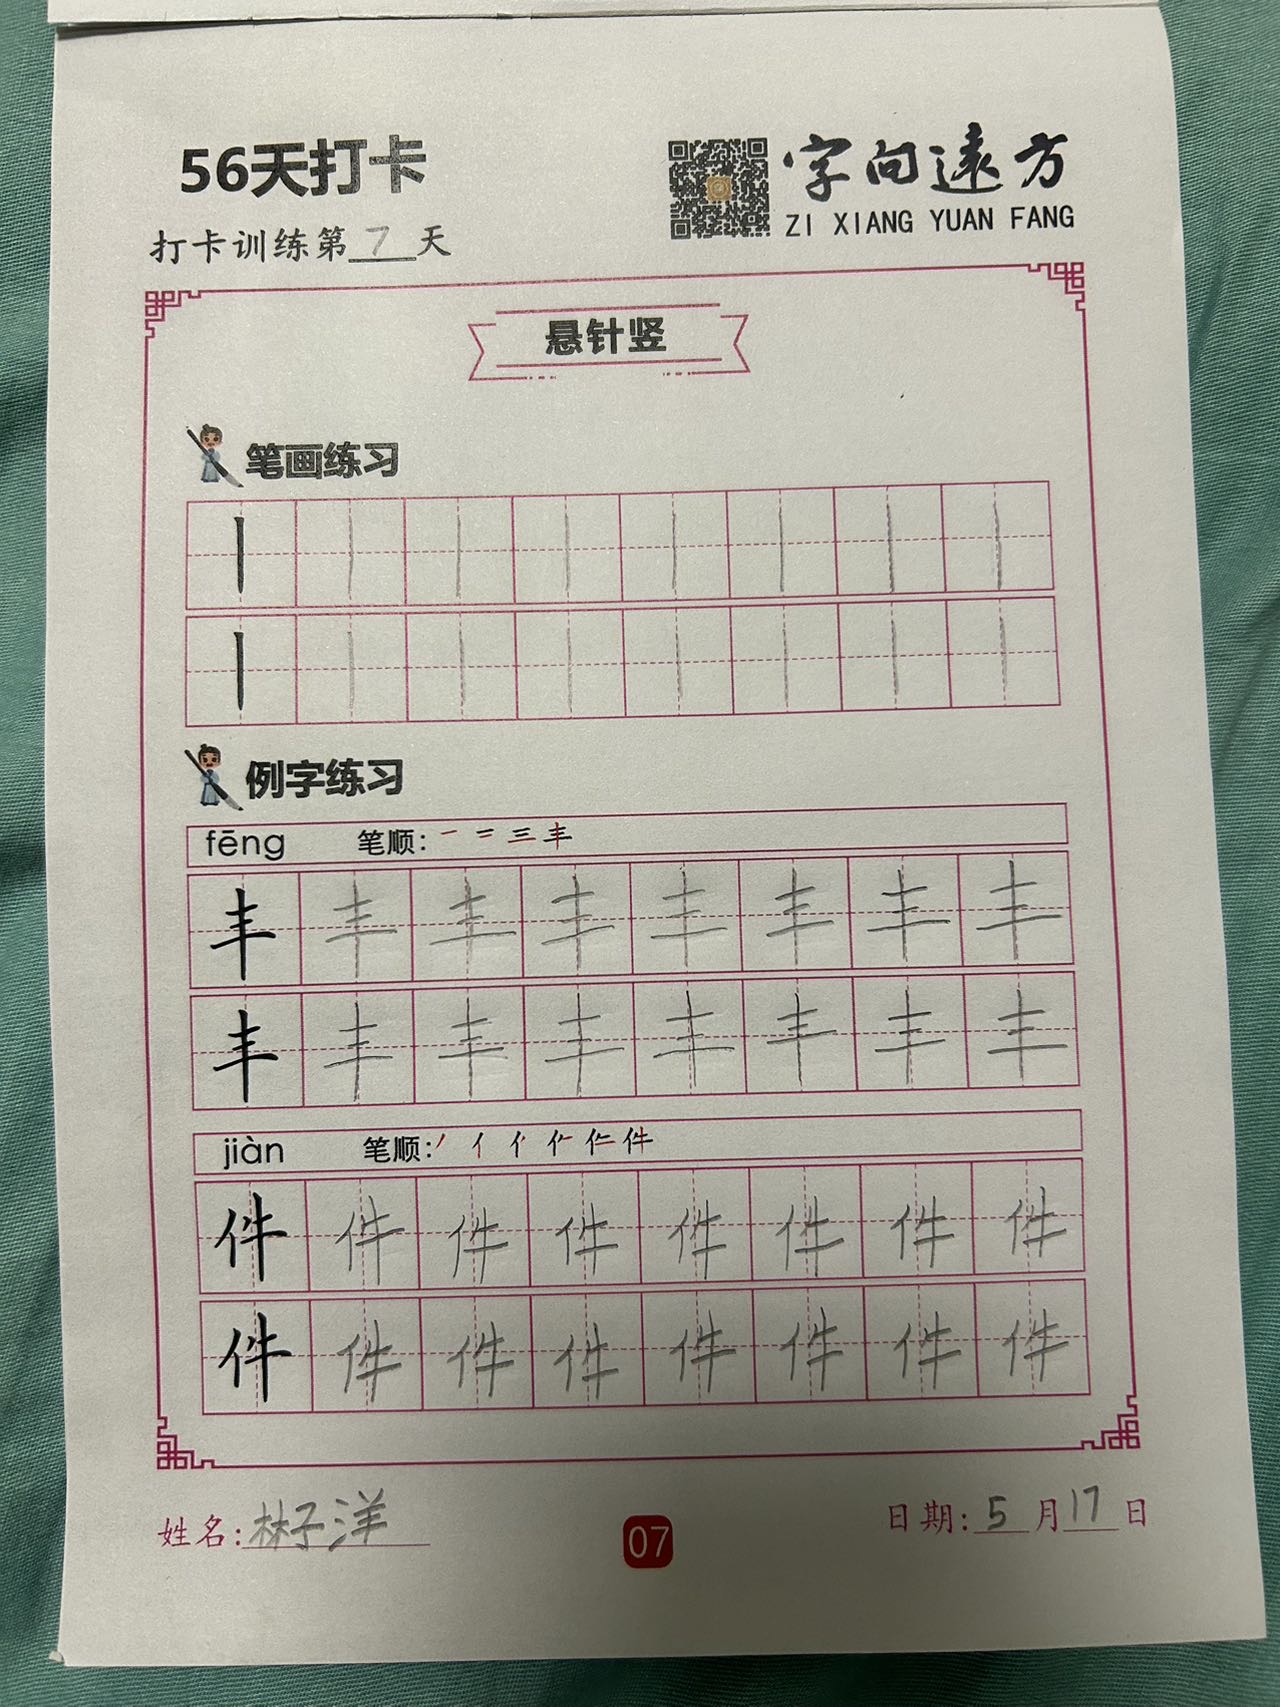 56天打卡
字向远方
ZI XIANG YUAN FANG
打卡训练第7天
悬针竖
笔画练习
丨 丨 丨 丨 丨 丨 丨 丨
丨 丨 丨 丨 丨 丨 丨 丨
例字练习
fēng 笔顺: 一 二 三 丰
丰 丰 丰 丰 丰 丰 丰 丰
丰 丰 丰 丰 丰 丰 丰 丰
jiàn 笔顺: 丿 亻 件
件 件 件 件 件 件 件 件
件 件 件 件 件 件 件 件
姓名: 林子洋
07
日期: 5月17日